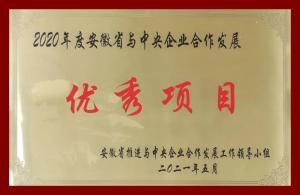 2020年度安徽省与中央企业合作发展
优秀项目
安徽省推进与中央企业合作发展工作领导小组
二〇二一年五月